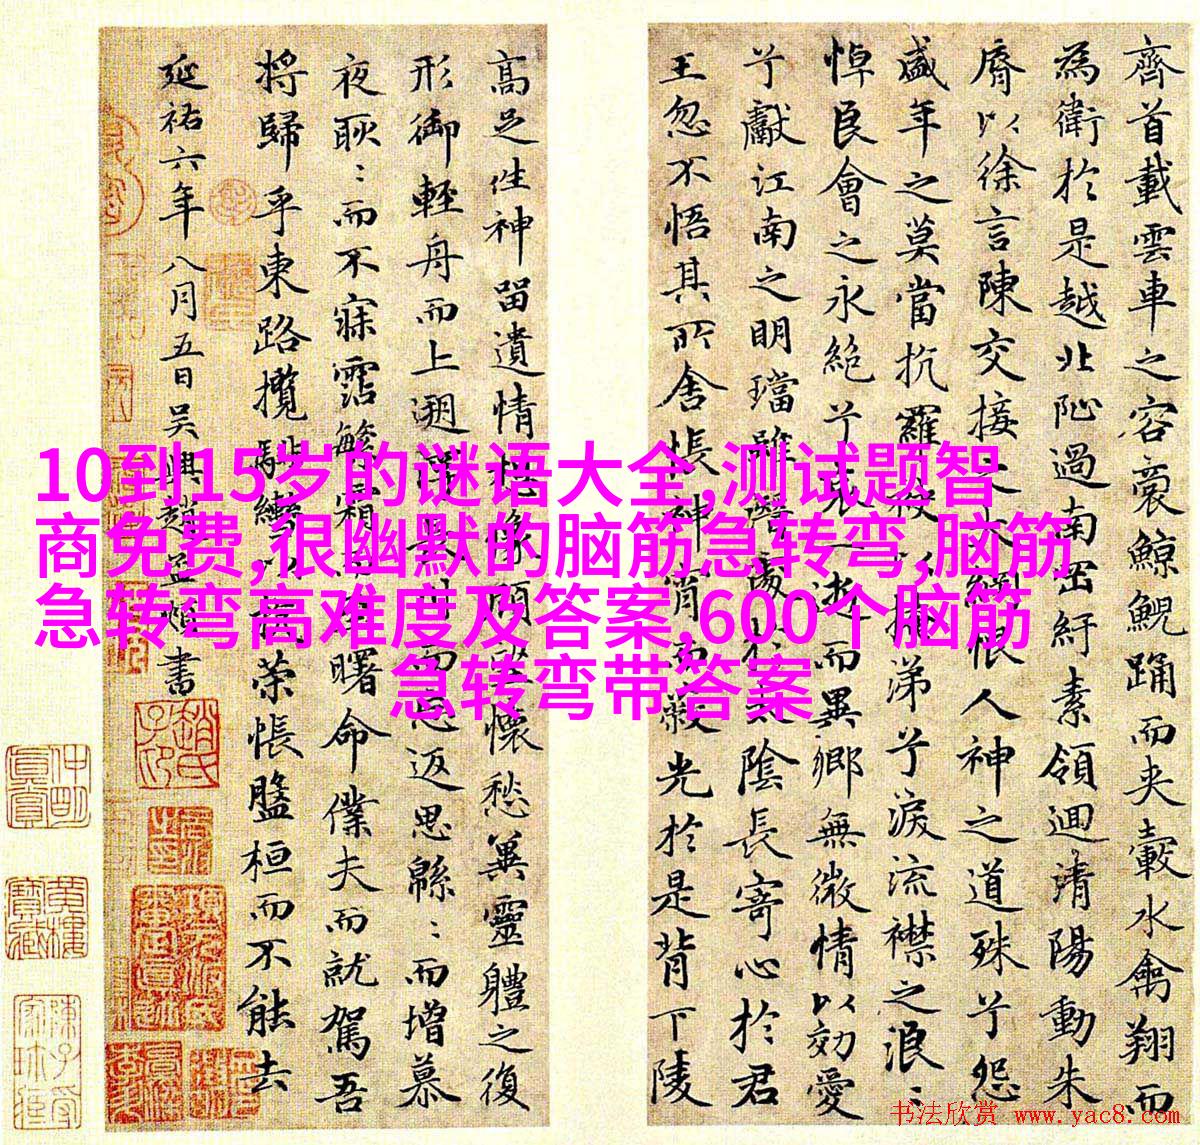 齊首載雲車之容裔鯨鯢踊而夾轂水禽翔而
為衛於是越北沚過南岡紆素領迴清陽動朱
脣以徐言陳交接之大綱恨人神之道殊兮怨
盛年之莫當抗羅袂以掩涕兮淚流襟之浪:
悼良會之永絕兮哀一逝而異鄉無微情以効愛
兮獻江南之明璫雖潛處於太陰長寄心於君
王忽不悟其所舍悵神宵而蔽光於是背下陵
高足往神留遺情想像顧望懷愁冀靈體之復
形御輕舟而上遡浮長川而忘返思緜:而增慕
夜耿:而不寐霑繁霜而至曙命僕夫而就駕吾
將歸乎東路攬騑轡以抗策悵盤桓而不能去
延祐六年八月五日吳興趙孟頫書
10到15岁的谜语大全,测试题智
商免费,很幽默的脑筋急转弯,脑筋
急转弯高难度及答案,600个脑筋
急转弯带答案
书法欣赏 www.yac8.com